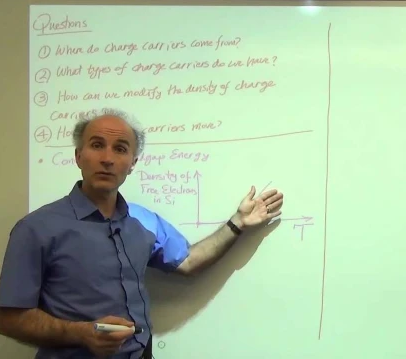 Questions
① Where do charge carriers come from?
② What types of charge carriers do we have?
③ How can we modify the density of charge
carriers
④ carriers move?
Energy
Density of
Free Electrons
in Si
T